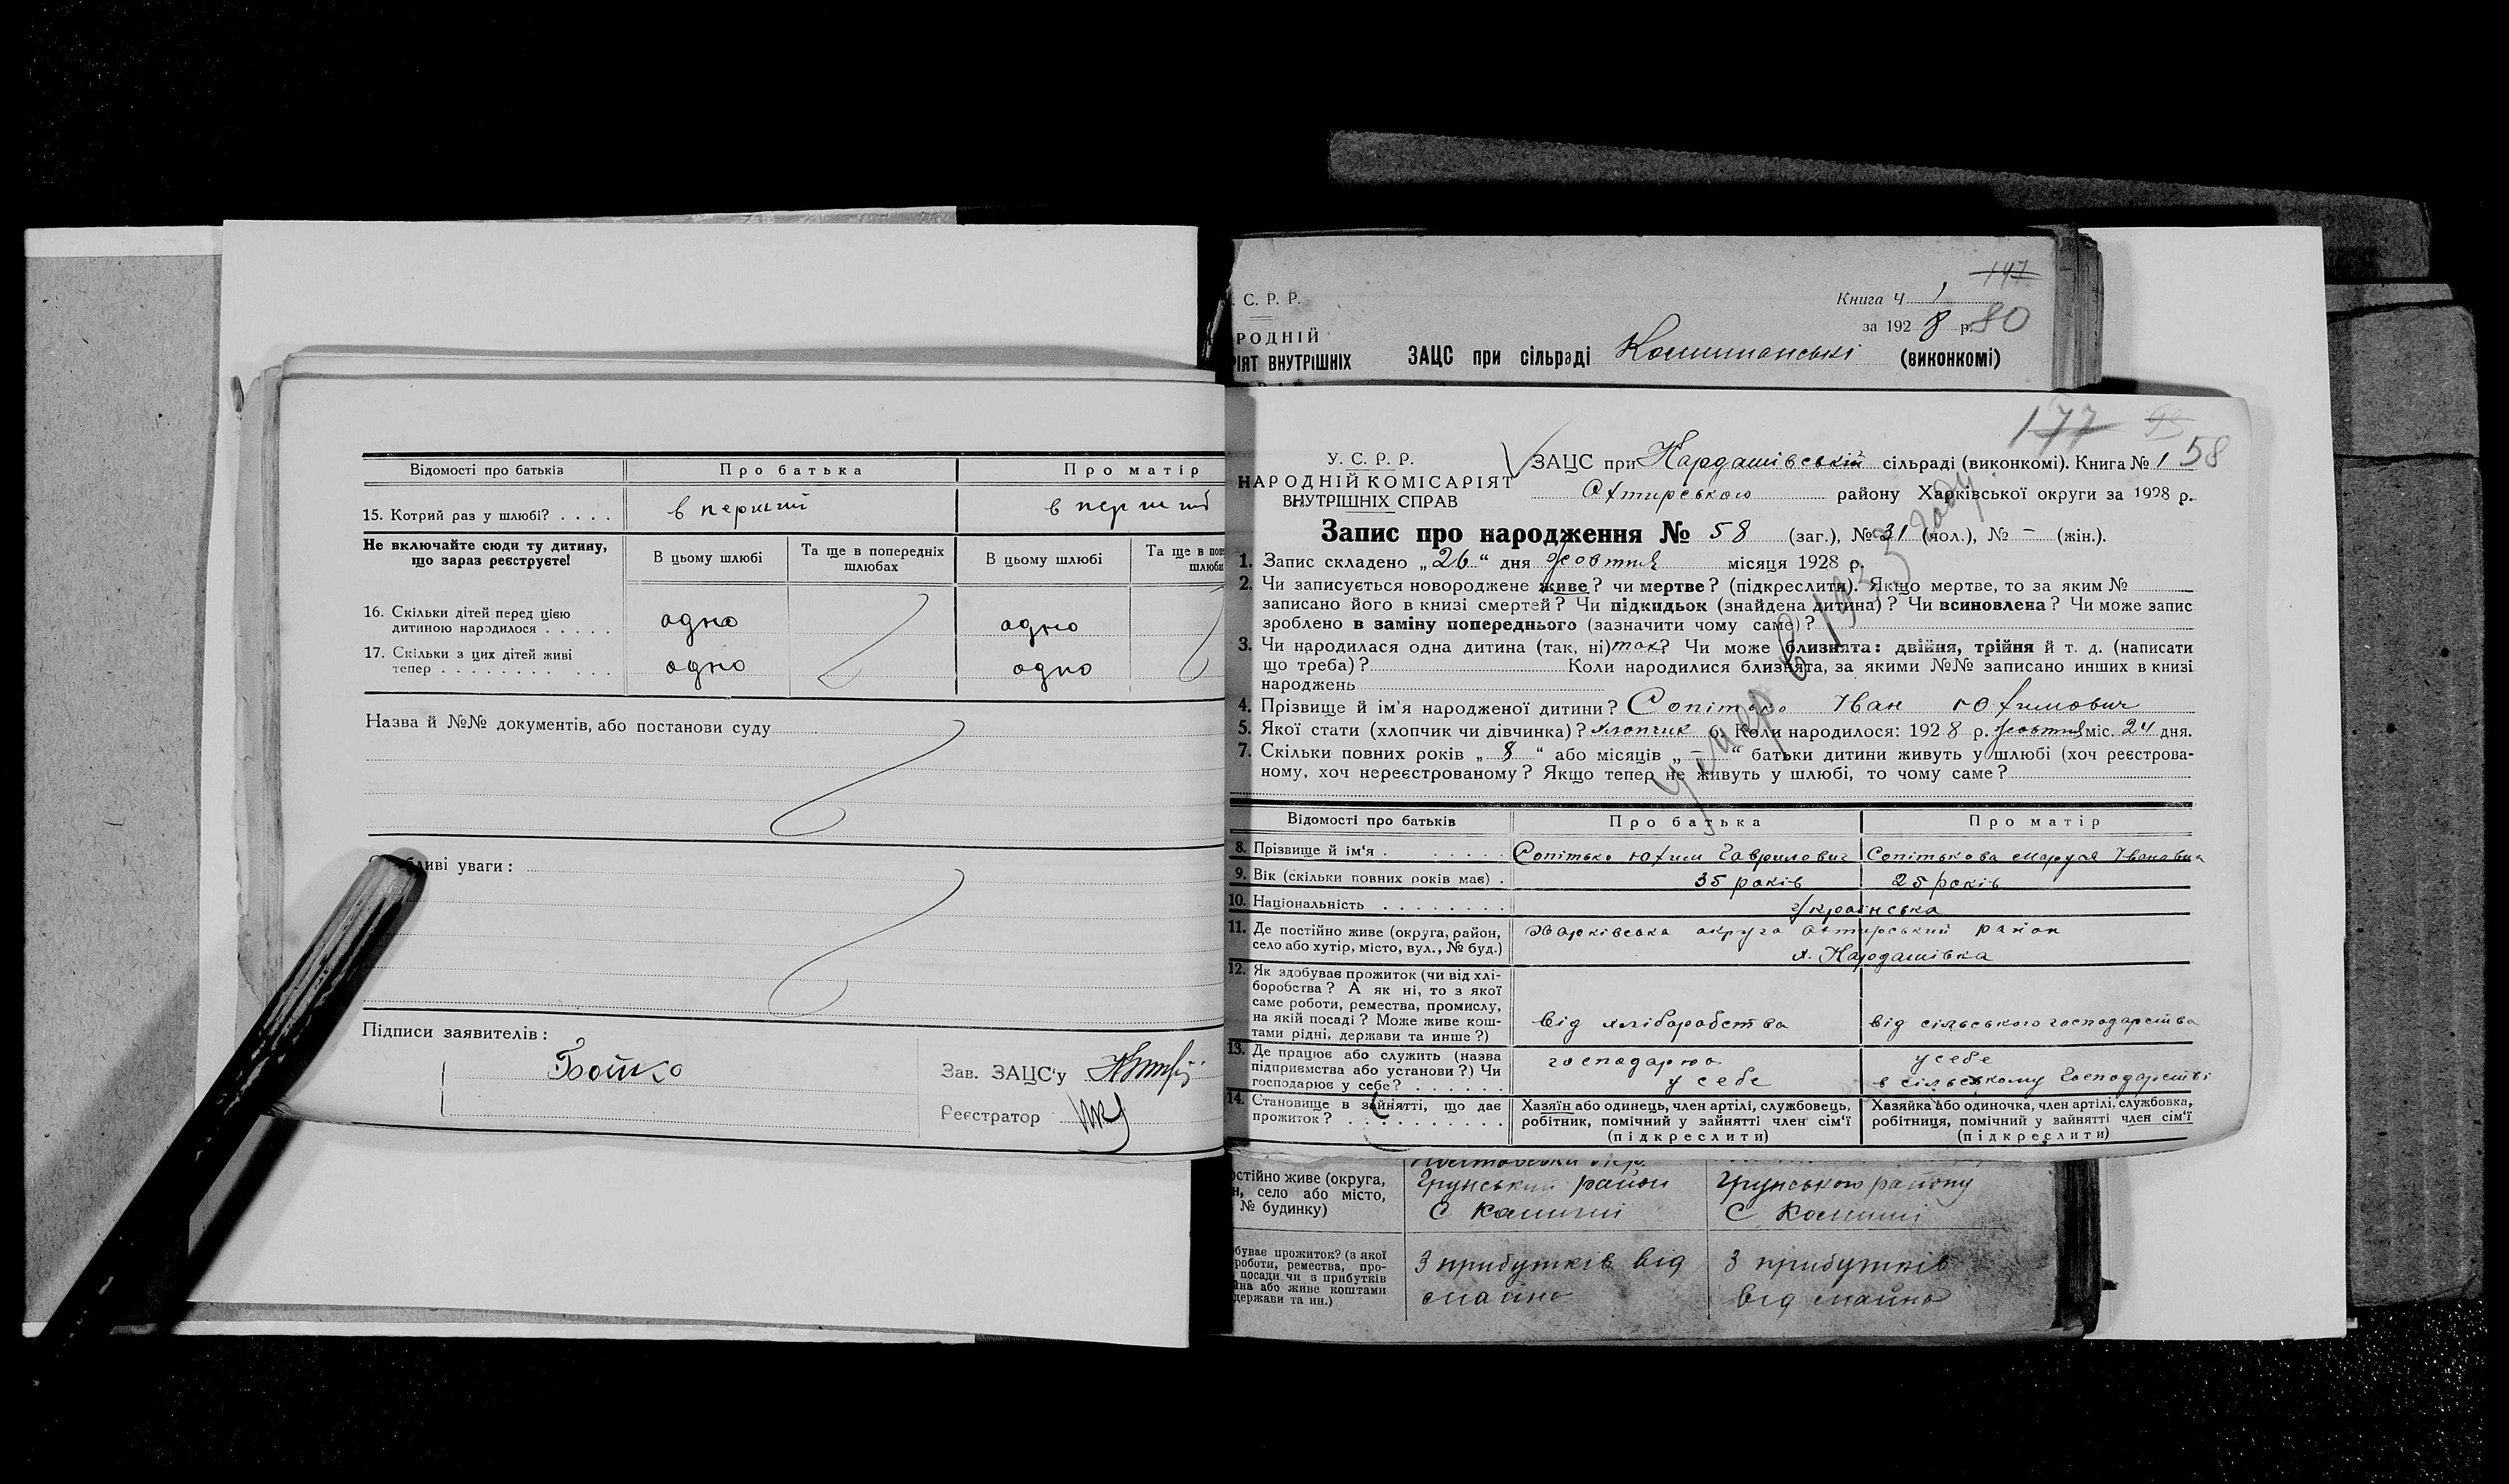 Відомості про батьків Про батька Про матір
15. Котрий раз у шлюбі? . . . . в перший в перший
Не включайте сюди ту дитину, що зараз реєструєте!
В цьому шлюбі Та ще в попередніх шлюбах В цьому шлюбі Та ще в поп
шлюба
16. Скільки дітей перед цією
дитиною народилося . . . . . одно одно
17. Скільки з цих дітей живі
тепер . . . . . . . . . . . одно одно
Назва й №№ документів, або постанови суду
ливі уваги:
Підписи заявителів:
Бойко
Зав. ЗАЦС'у
Реєстратор
. С. Р. Р.
РОДНІЙ
РІЯТ ВНУТРІШНІХ
147
Книга Ч 1
за 1928 р. 80
ЗАЦС при сільраді (виконкомі)
177 58
У. С. Р. Р.
НАРОДНІЙ КОМІСАРІЯТ
ВНУТРІШНІХ СПРАВ
ЗАЦС при Кардашівській сільраді (виконкомі). Книга № 1
Охтирського району Харківської округи за 1928 р.
Запис про народження № 58 (заг.), № 31 (чол.), № – (жін.).
1. Запис складено „26“ дня жовтня місяця 1928 р.
2. Чи записується новороджене живе? чи мертве? (підкреслити). Якщо мертве, то за яким №
записано його в книзі смертей? Чи підкидьок (знайдена дитина)? Чи всиновлена? Чи може запис
зроблено в заміну попереднього (зазначити чому саме)?
3. Чи народилася одна дитина (так, ні) так? Чи може близнята: двійня, трійня й т. д. (написати
що треба)? Коли народилися близнята, за якими №№ записано инших в книзі
народжень
4. Прізвище й ім'я народженої дитини? Сопітько Іван Юхимович
5. Якої стати (хлопчик чи дівчинка)? хлопчик 6. Коли народилося: 1928 р. жовтня міс. 24 дня.
7. Скільки повних років „8“ або місяців „–“ батьки дитини живуть у шлюбі (хоч реєстрова-
ному, хоч нереєстрованому? Якщо тепер не живуть у шлюбі, то чому саме?
в 1933 году
Відомості про батьків Про батька Про матір
8. Прізвище й ім'я . . . . . . Сопітько Юхим Гаврилович Сопітькова Маруся Івановна
9. Вік (скільки повних років має) . 35 років 25 років
10. Національність . . . . . . . . Українська
11. Де постійно живе (округа, район,
село або хутір, місто, вул., № буд.) Харківська округа Охтирський район
х. Кардашівка
12. Як здобуває прожиток (чи від хлі-
боробства? А як ні, то з якої
саме роботи, ремества, промислу,
на якій посаді? Може живе кош-
тами рідні, держави та инше?) від хліборобства від сільського господарства
13. Де працює або служить (назва
підприємства або установи?) Чи
господарює у себе? . . . . . . господарює у себе у себе в сільському господарстві
14. Становище в зайнятті, що дає
прожиток? . . . . . . . . . .
Хазяїн або одинець, член артілі, службовець,
робітник, помічний у зайнятті член сім'ї
(підкреслити)
Хазяйка або одиночка, член артілі, службовка,
робітниця, помічний у зайнятті член сім'ї
(підкреслити)
остійно живе (округа,
н, село або місто,
№ будинку)
Грунський район Грунського району
буває прожиток? (з якої
роботи, ремества, про-
посади чи з прибутків
йна або живе коштами
держави та ин.)
З прибутків від З прибутків
майна від майна